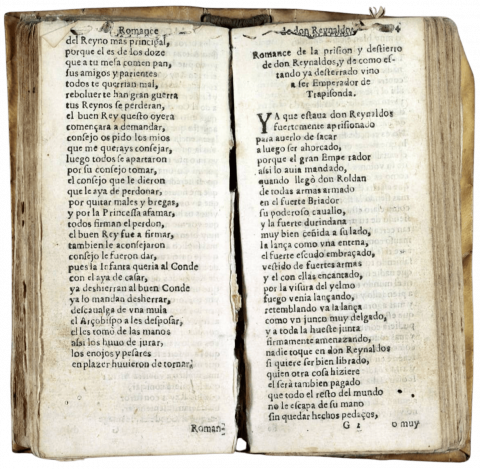 Romance
del Reyno mas principal,
porque el es de los doze
que a tu mesa comen pan,
sus amigos y parientes
todos te querrian mal,
reboluer te han gran guerra
tus Reynos se perderan,
el buen Rey questo oyera
començara a demandar,
consejo os pido los mios
que me querays consejar,
luego todos se apartaron
por su consejo tomar,
el consejo que le dieron
que le aya de perdonar,
por quitar males y bregas,
y por la Princessa afamar,
todos firman el perdon,
el buen Rey fue a firmar,
tambien le aconsejaron
consejo le fueron dar,
pues la Infanta queria al Conde
con el aya de casar,
ya deshierran al buen Conde
ya lo mandan desherrar,
descaualga de vna mula
el Arçobispo a les desposar,
el les tomo de las manos
assi los huuo de jurar,
los enojos y pesares
en plazer huuieron de tornar.
Roman-
de don Reynaldos 4
Romance de la prision y destierro
de don Reynaldos, y de como es-
tando ya desterrado vino
a ser Emperador de
Trapisonda.
YA que estaua don Reynaldos
fuertemente aprisionado
para auerlo de sacar
a luego ser ahorcado,
porque el gran Emperador
assi lo auia mandado,
quando llegò don Roldan
de todas armas armado
en el fuerte Briador
su poderoso cauallo,
y la fuerte durindana
muy bien ceñida a su lado,
la lança como vna entena,
el fuerte escudo embraçado,
vestido de fuertes armas
y el con ellas encantado,
por la visura del yelmo
fuego venia lançando,
retemblando va la lança
como vn junco muy delgado,
y a toda la hueste junta
firmamente amenazando,
nadie toque en don Reynaldos
si quiere ser bien librado,
quien otra cosa hiziere
el sera tambien pagado
que todo el resto del mundo
no le escapa de su mano
sin quedar hechos pedaços,
G 2 o muy